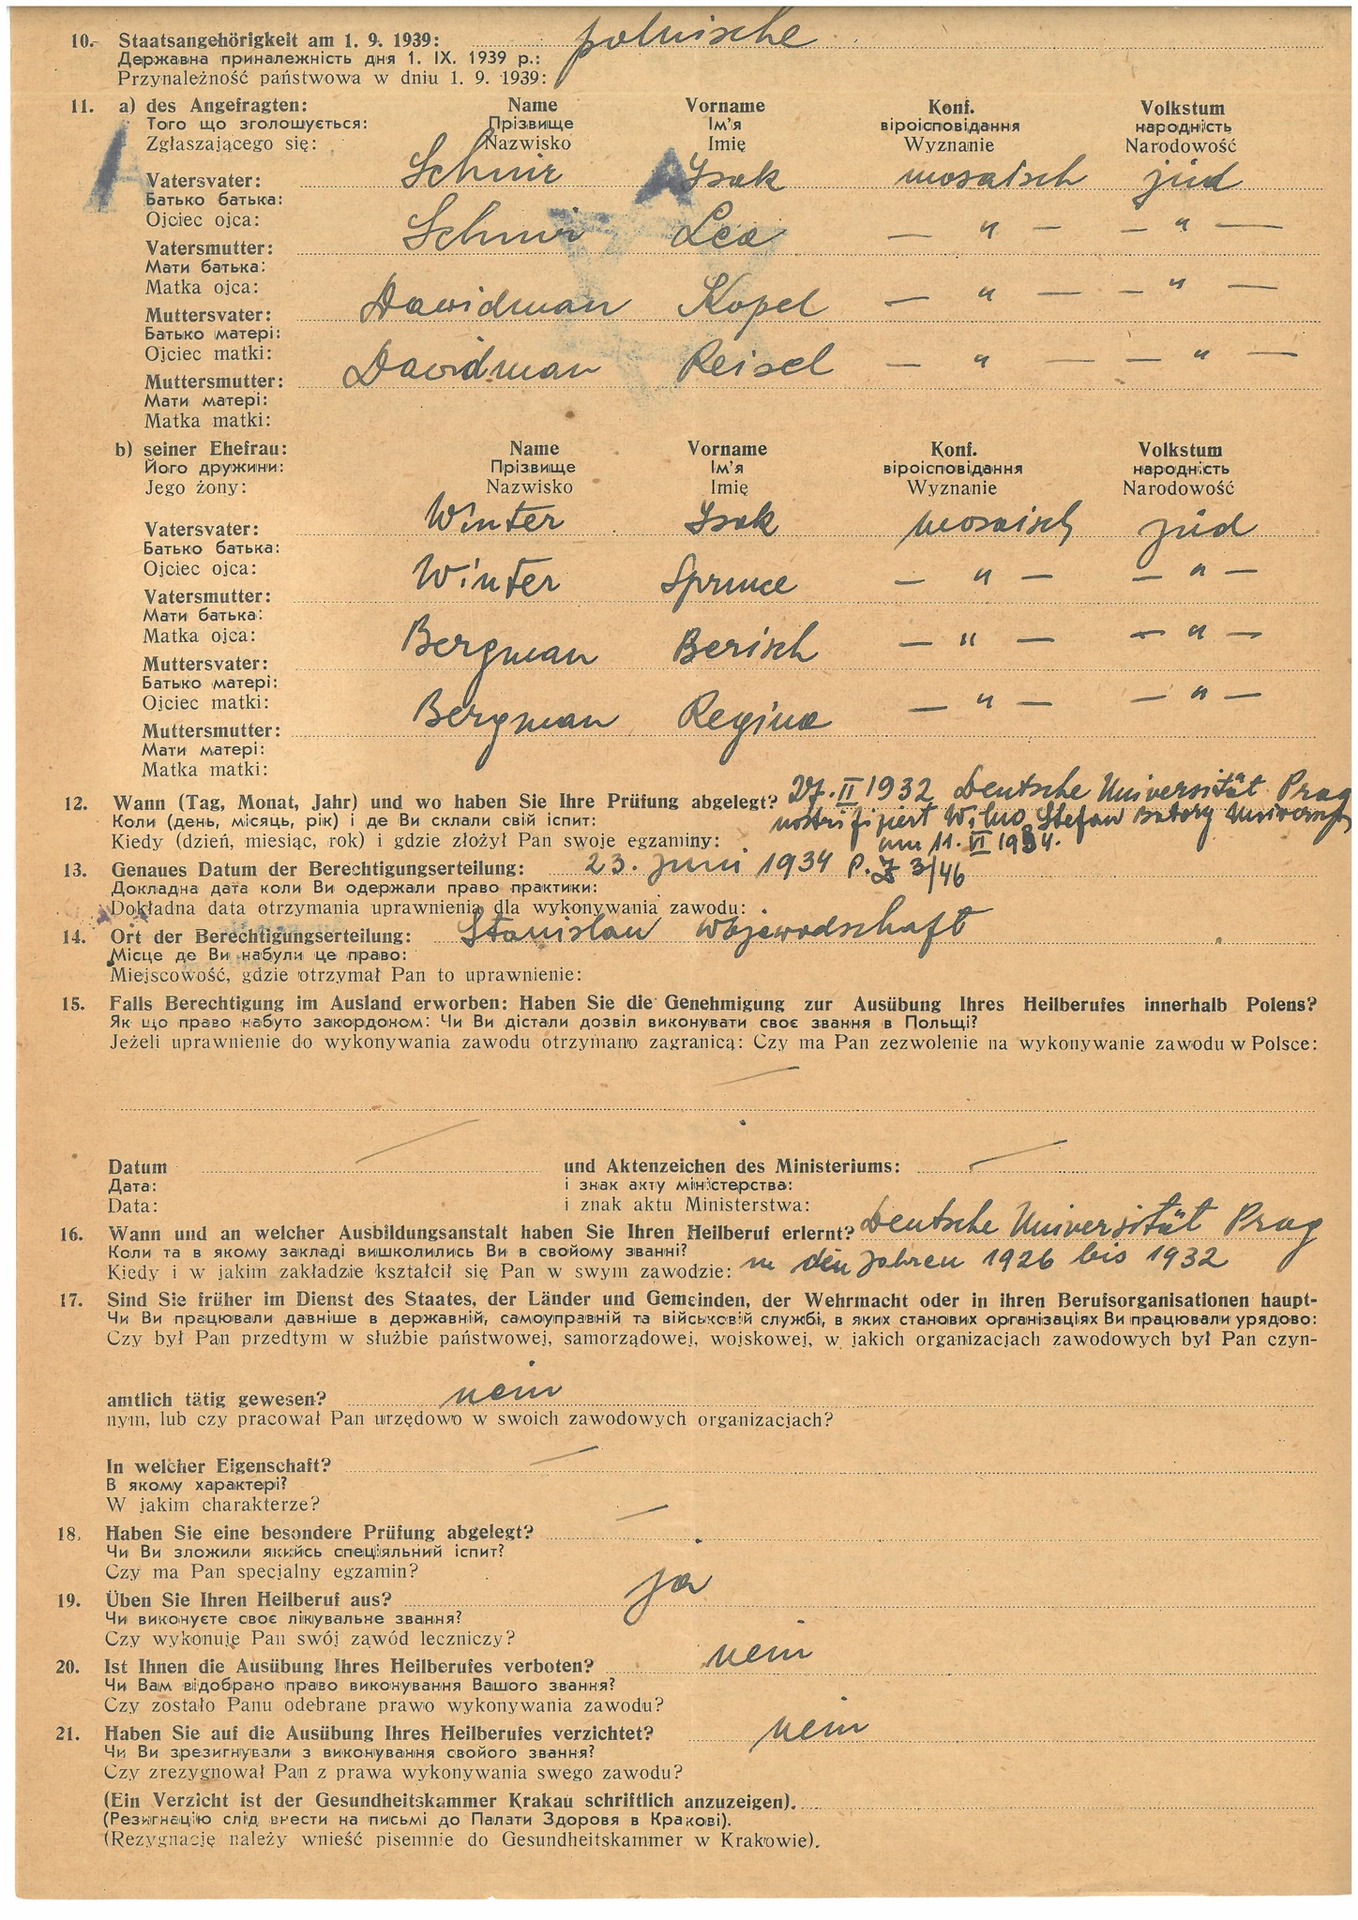 10. Staatsangehörigkeit am 1. 9. 1939: polnische
Державна приналежність дня 1. IX. 1939 р.:
Przynależność państwowa w dniu 1. 9. 1939:
11. a) des Angefragten: Name Vorname Konf. Volkstum
Того що зголошується: Прізвище Ім'я віроісповідання народність
Zgłaszającego się: Nazwisko Imię Wyznanie Narodowość
Vatersvater: Schnir Isak mosaisch jüd
Батько батька:
Ojciec ojca:
Vatersmutter: Schnir Lea — " — — " —
Мати батька:
Matka ojca:
Muttersvater: Dawidman Kopel — " — — " —
Батько матері:
Ojciec matki:
Muttersmutter: Dawidman Reisel — " — — " —
Мати матері:
Matka matki:
b) seiner Ehefrau: Name Vorname Konf. Volkstum
Його дружини: Прізвище Ім'я віроісповідання народність
Jego żony: Nazwisko Imię Wyznanie Narodowość
Vatersvater: Winter Isak mosaisch jüd
Батько батька:
Ojciec ojca:
Vatersmutter: Winter Sprince — " — — " —
Мати батька:
Matka ojca:
Muttersvater: Bergman Berisch — " — — " —
Батько матері:
Ojciec matki:
Muttersmutter: Bergman Regina — " — — " —
Мати матері:
Matka matki:
12. Wann (Tag, Monat, Jahr) und wo haben Sie Ihre Prüfung abgelegt? 27. II 1932 Deutsche Universität Prag
Коли (день, місяць, рік) і де Ви склали свій іспит: nostrifiziert Wilno Stefan Batory Universität
Kiedy (dzień, miesiąc, rok) i gdzie złożył Pan swoje egzaminy: am 11. VI 1934.
13. Genaues Datum der Berechtigungserteilung: 23. Juni 1934 P. Z 3/46
Докладна дата коли Ви одержали право практики:
Dokładna data otrzymania uprawnienia dla wykonywania zawodu:
14. Ort der Berechtigungserteilung: Stanislau Wojewodschaft
Місце де Ви набули це право:
Miejscowość, gdzie otrzymał Pan to uprawnienie:
15. Falls Berechtigung im Ausland erworben: Haben Sie die Genehmigung zur Ausübung Ihres Heilberufes innerhalb Polens?
Як що право набуто закордоном: Чи Ви дістали дозвіл виконувати своє звання в Польщі?
Jeżeli uprawnienie do wykonywania zawodu otrzymano zagranicą: Czy ma Pan zezwolenie na wykonywanie zawodu w Polsce:
—
Datum — und Aktenzeichen des Ministeriums: —
Дата: і знак акту міністерства:
Data: i znak aktu Ministerstwa:
16. Wann und an welcher Ausbildungsanstalt haben Sie Ihren Heilberuf erlernt? Deutsche Universität Prag
Коли та в якому закладі вишколились Ви в свойому званні?
Kiedy i w jakim zakładzie kształcił się Pan w swym zawodzie: in den Jahren 1926 bis 1932
17. Sind Sie früher im Dienst des Staates, der Länder und Gemeinden, der Wehrmacht oder in ihren Berufsorganisationen haupt-
Чи Ви працювали давніше в державній, самоуправній та військовій службі, в яких станових організаціях Ви працювали урядово:
Czy był Pan przedtym w służbie państwowej, samorządowej, wojskowej, w jakich organizacjach zawodowych był Pan czyn-
amtlich tätig gewesen? nein
nym, lub czy pracował Pan urzędowo w swoich zawodowych organizacjach?
In welcher Eigenschaft? —
В якому характері?
W jakim charakterze?
18. Haben Sie eine besondere Prüfung abgelegt? —
Чи Ви зложили якийсь спеціяльний іспит?
Czy ma Pan specjalny egzamin?
19. Üben Sie Ihren Heilberuf aus? ja
Чи виконуєте своє лікувальне звання?
Czy wykonuje Pan swój zawód leczniczy?
20. Ist Ihnen die Ausübung Ihres Heilberufes verboten? nein
Чи Вам відобрано право виконування Вашого звання?
Czy zostało Panu odebrane prawo wykonywania zawodu?
21. Haben Sie auf die Ausübung Ihres Heilberufes verzichtet? nein
Чи Ви зрезигнували з виконування свойого звання?
Czy zrezygnował Pan z prawa wykonywania swego zawodu?
(Ein Verzicht ist der Gesundheitskammer Krakau schriftlich anzuzeigen).
(Резигнацію слід внести на письмі до Палати Здоровя в Кракові).
(Rezygnację należy wnieść pisemnie do Gesundheitskammer w Krakowie).